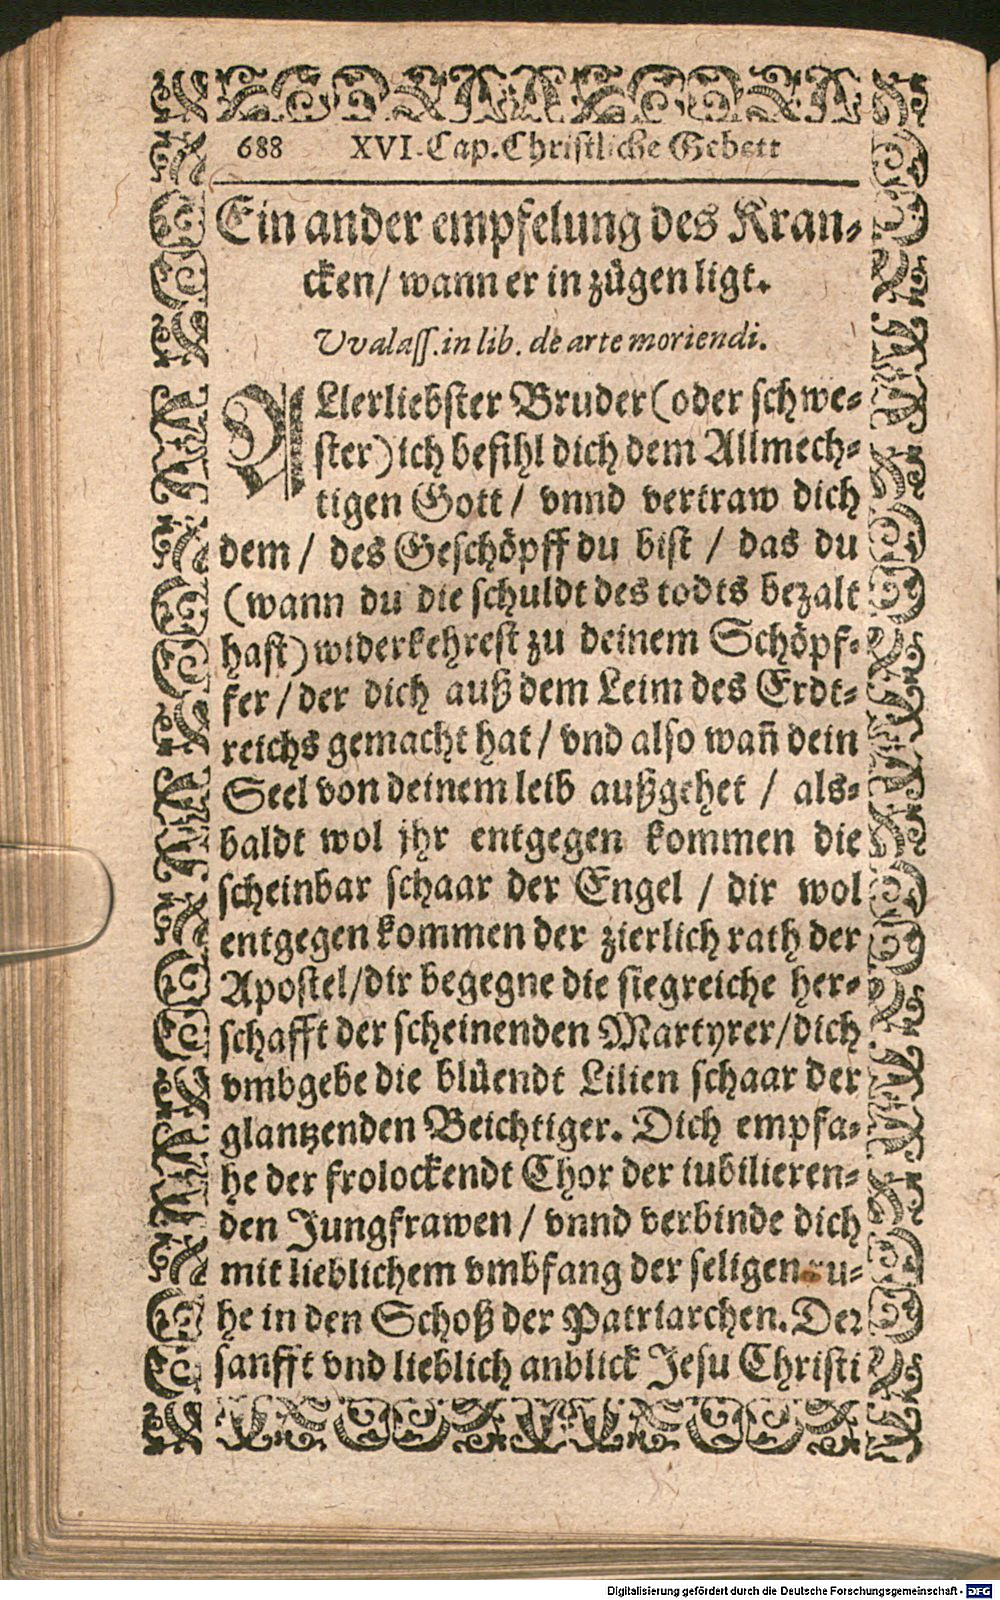 688 XVI. Cap. Christliche Gebett
Ein ander empfelung des Kran-
cken/ wann er in zügen ligt.
Vvalaſſ. in lib. de arte moriendi.
ALlerliebster Bruder (oder schwe-
ster) ich befihl dich dem Allmech-
tigen Gott / vnnd vertraw dich
dem / des Geschöpff du bist / das du
(wann du die schuldt des todts bezalt
hast) widerkehrest zu deinem Schöpf-
fer / der dich auß dem Leim des Erdt-
reichs gemacht hat / vnd also wañ dein
Seel von deinem leib außgehet / als-
baldt wol jhr entgegen kommen die
scheinbar schaar der Engel / dir wol
entgegen kommen der zierlich rath der
Apostel/dir begegne die siegreiche her-
schafft der scheinenden Martyrer/dich
vmbgebe die blüendt Lilien schaar der
glantzenden Beichtiger. Dich empfa-
he der frolockendt Chor der iubilieren-
den Jungfrawen / vnnd verbinde dich
mit lieblichem vmbfang der seligen ru-
he in den Schoß der Patriarchen. Der
sanfft vnd lieblich anblick Jesu Christi
Digitalisierung gefördert durch die Deutsche Forschungsgemeinschaft - DFG